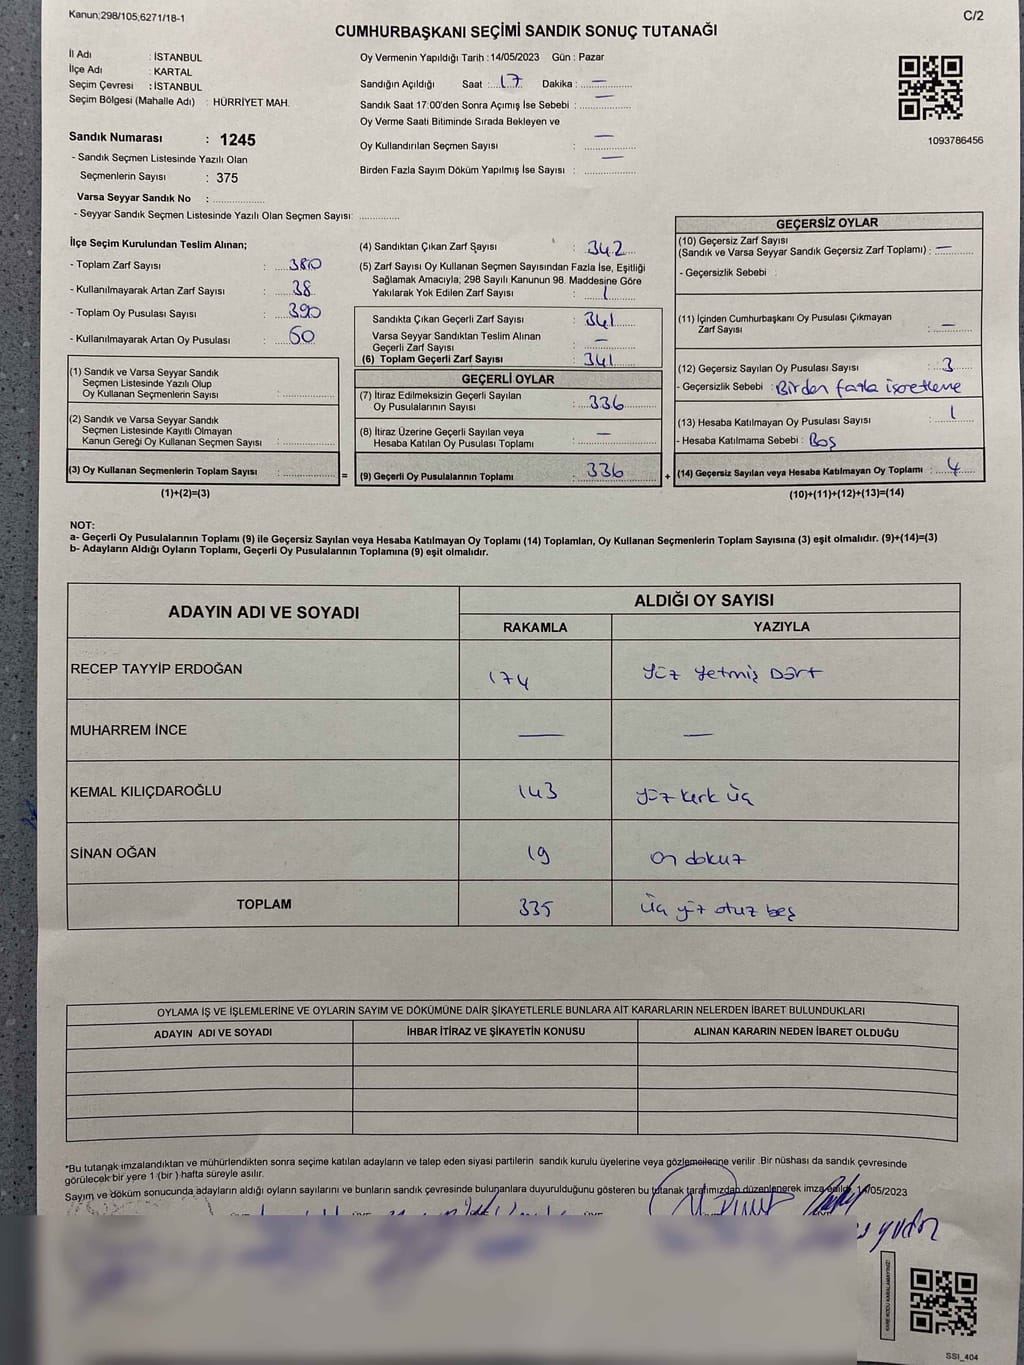 Kanun;298/105,6271/18-1
C/2
CUMHURBAŞKANI SEÇİMİ SANDIK SONUÇ TUTANAĞI
İl Adı : İSTANBUL
İlçe Adı : KARTAL
Seçim Çevresi : İSTANBUL
Seçim Bölgesi (Mahalle Adı) : HÜRRİYET MAH.
Sandık Numarası : 1245
- Sandık Seçmen Listesinde Yazılı Olan
Seçmenlerin Sayısı : 375
Varsa Seyyar Sandık No : ................
- Seyyar Sandık Seçmen Listesinde Yazılı Olan Seçmen Sayısı: ............
Oy Vermenin Yapıldığı Tarih : 14/05/2023 Gün : Pazar
Sandığın Açıldığı Saat : 17 Dakika : —
Sandık Saat 17:00'den Sonra Açımış İse Sebebi : —
Oy Verme Saati Bitiminde Sırada Bekleyen ve
Oy Kullandırılan Seçmen Sayısı : —
Birden Fazla Sayım Döküm Yapılmış İse Sayısı : —
1093786456
İlçe Seçim Kurulundan Teslim Alınan;
- Toplam Zarf Sayısı : 380
- Kullanılmayarak Artan Zarf Sayısı : 38
- Toplam Oy Pusulası Sayısı : 390
- Kullanılmayarak Artan Oy Pusulası : 50
(1) Sandık ve Varsa Seyyar Sandık
Seçmen Listesinde Yazılı Olup
Oy Kullanan Seçmenlerin Sayısı : ................
(2) Sandık ve Varsa Seyyar Sandık
Seçmen Listesinde Kayıtlı Olmayan
Kanun Gereği Oy Kullanan Seçmen Sayısı : ................
(3) Oy Kullanan Seçmenlerin Toplam Sayısı : ................
(1)+(2)=(3)
(4) Sandıktan Çıkan Zarf Sayısı : 342
(5) Zarf Sayısı Oy Kullanan Seçmen Sayısından Fazla İse, Eşitliği
Sağlamak Amacıyla; 298 Sayılı Kanunun 98. Maddesine Göre
Yakılarak Yok Edilen Zarf Sayısı : 1
Sandıkta Çıkan Geçerli Zarf Sayısı : 341
Varsa Seyyar Sandıktan Teslim Alınan
Geçerli Zarf Sayısı : —
(6) Toplam Geçerli Zarf Sayısı : 341
GEÇERLİ OYLAR
(7) İtiraz Edilmeksizin Geçerli Sayılan
Oy Pusulalarının Sayısı : 336
(8) İtiraz Üzerine Geçerli Sayılan veya
Hesaba Katılan Oy Pusulası Toplamı : —
= (9) Geçerli Oy Pusulalarının Toplamı : 336
GEÇERSİZ OYLAR
(10) Geçersiz Zarf Sayısı
(Sandık ve Varsa Seyyar Sandık Geçersiz Zarf Toplamı) : —
- Geçersizlik Sebebi :
(11) İçinden Cumhurbaşkanı Oy Pusulası Çıkmayan
Zarf Sayısı : —
(12) Geçersiz Sayılan Oy Pusulası Sayısı : 3
- Geçersizlik Sebebi : Birden fazla işaretleme
(13) Hesaba Katılmayan Oy Pusulası Sayısı : 1
- Hesaba Katılmama Sebebi : Boş
+ (14) Geçersiz Sayılan veya Hesaba Katılmayan Oy Toplamı : 4
(10)+(11)+(12)+(13)=(14)
NOT:
a- Geçerli Oy Pusulalarının Toplamı (9) ile Geçersiz Sayılan veya Hesaba Katılmayan Oy Toplamı (14) Toplamları, Oy Kullanan Seçmenlerin Toplam Sayısına (3) eşit olmalıdır. (9)+(14)=(3)
b- Adayların Aldığı Oyların Toplamı, Geçerli Oy Pusulalarının Toplamına (9) eşit olmalıdır.
ADAYIN ADI VE SOYADI ALDIĞI OY SAYISI
RAKAMLA YAZIYLA
RECEP TAYYİP ERDOĞAN 174 Yüz Yetmiş Dört
MUHARREM İNCE — —
KEMAL KILIÇDAROĞLU 143 Yüz kırk üç
SİNAN OĞAN 19 on dokuz
TOPLAM 335 üç yüz otuz beş
OYLAMA İŞ VE İŞLEMLERİNE VE OYLARIN SAYIM VE DÖKÜMÜNE DAİR ŞİKAYETLERLE BUNLARA AİT KARARLARIN NELERDEN İBARET BULUNDUKLARI
ADAYIN ADI VE SOYADI İHBAR İTİRAZ VE ŞİKAYETİN KONUSU ALINAN KARARIN NEDEN İBARET OLDUĞU
*Bu tutanak imzalandıktan ve mühürlendikten sonra seçime katılan adayların ve talep eden siyasi partilerin sandık kurulu üyelerine veya gözlemcilerine verilir .Bir nüshası da sandık çevresinde
görülecek bir yere 1 (bir ) hafta süreyle asılır.
Sayım ve döküm sonucunda adayların aldığı oyların sayılarını ve bunların sandık çevresinde bulunanlara duyurulduğunu gösteren bu tutanak tarafımızdan düzenlenerek imza edildi. 14/05/2023
SSI_404